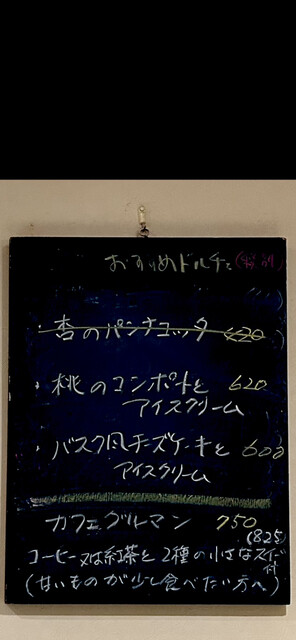 おすすめドルチェ(税別)
・杏のパンナコッタ 620
・桃のコンポートと 620
アイスクリーム
・バスク風チーズケーキと 600
アイスクリーム
カフェグルマン 750
(825)
コーヒー又は紅茶と2種の小さなスイーツ付
(甘いものが少し食べたい方へ)